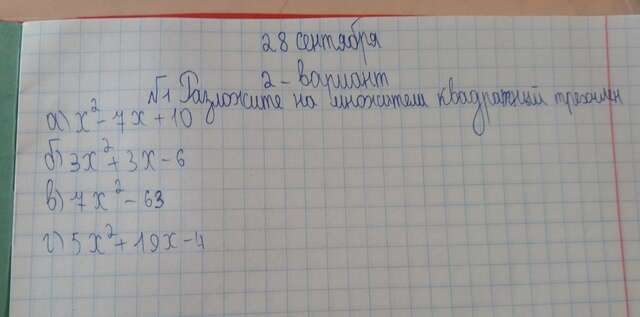 28 сентября
2-вариант
№1 Разложите на множители квадратный трехчлен
а) x² - 7x + 10
б) 3x² + 3x - 6
в) 7x² - 63
г) 5x² + 19x - 4